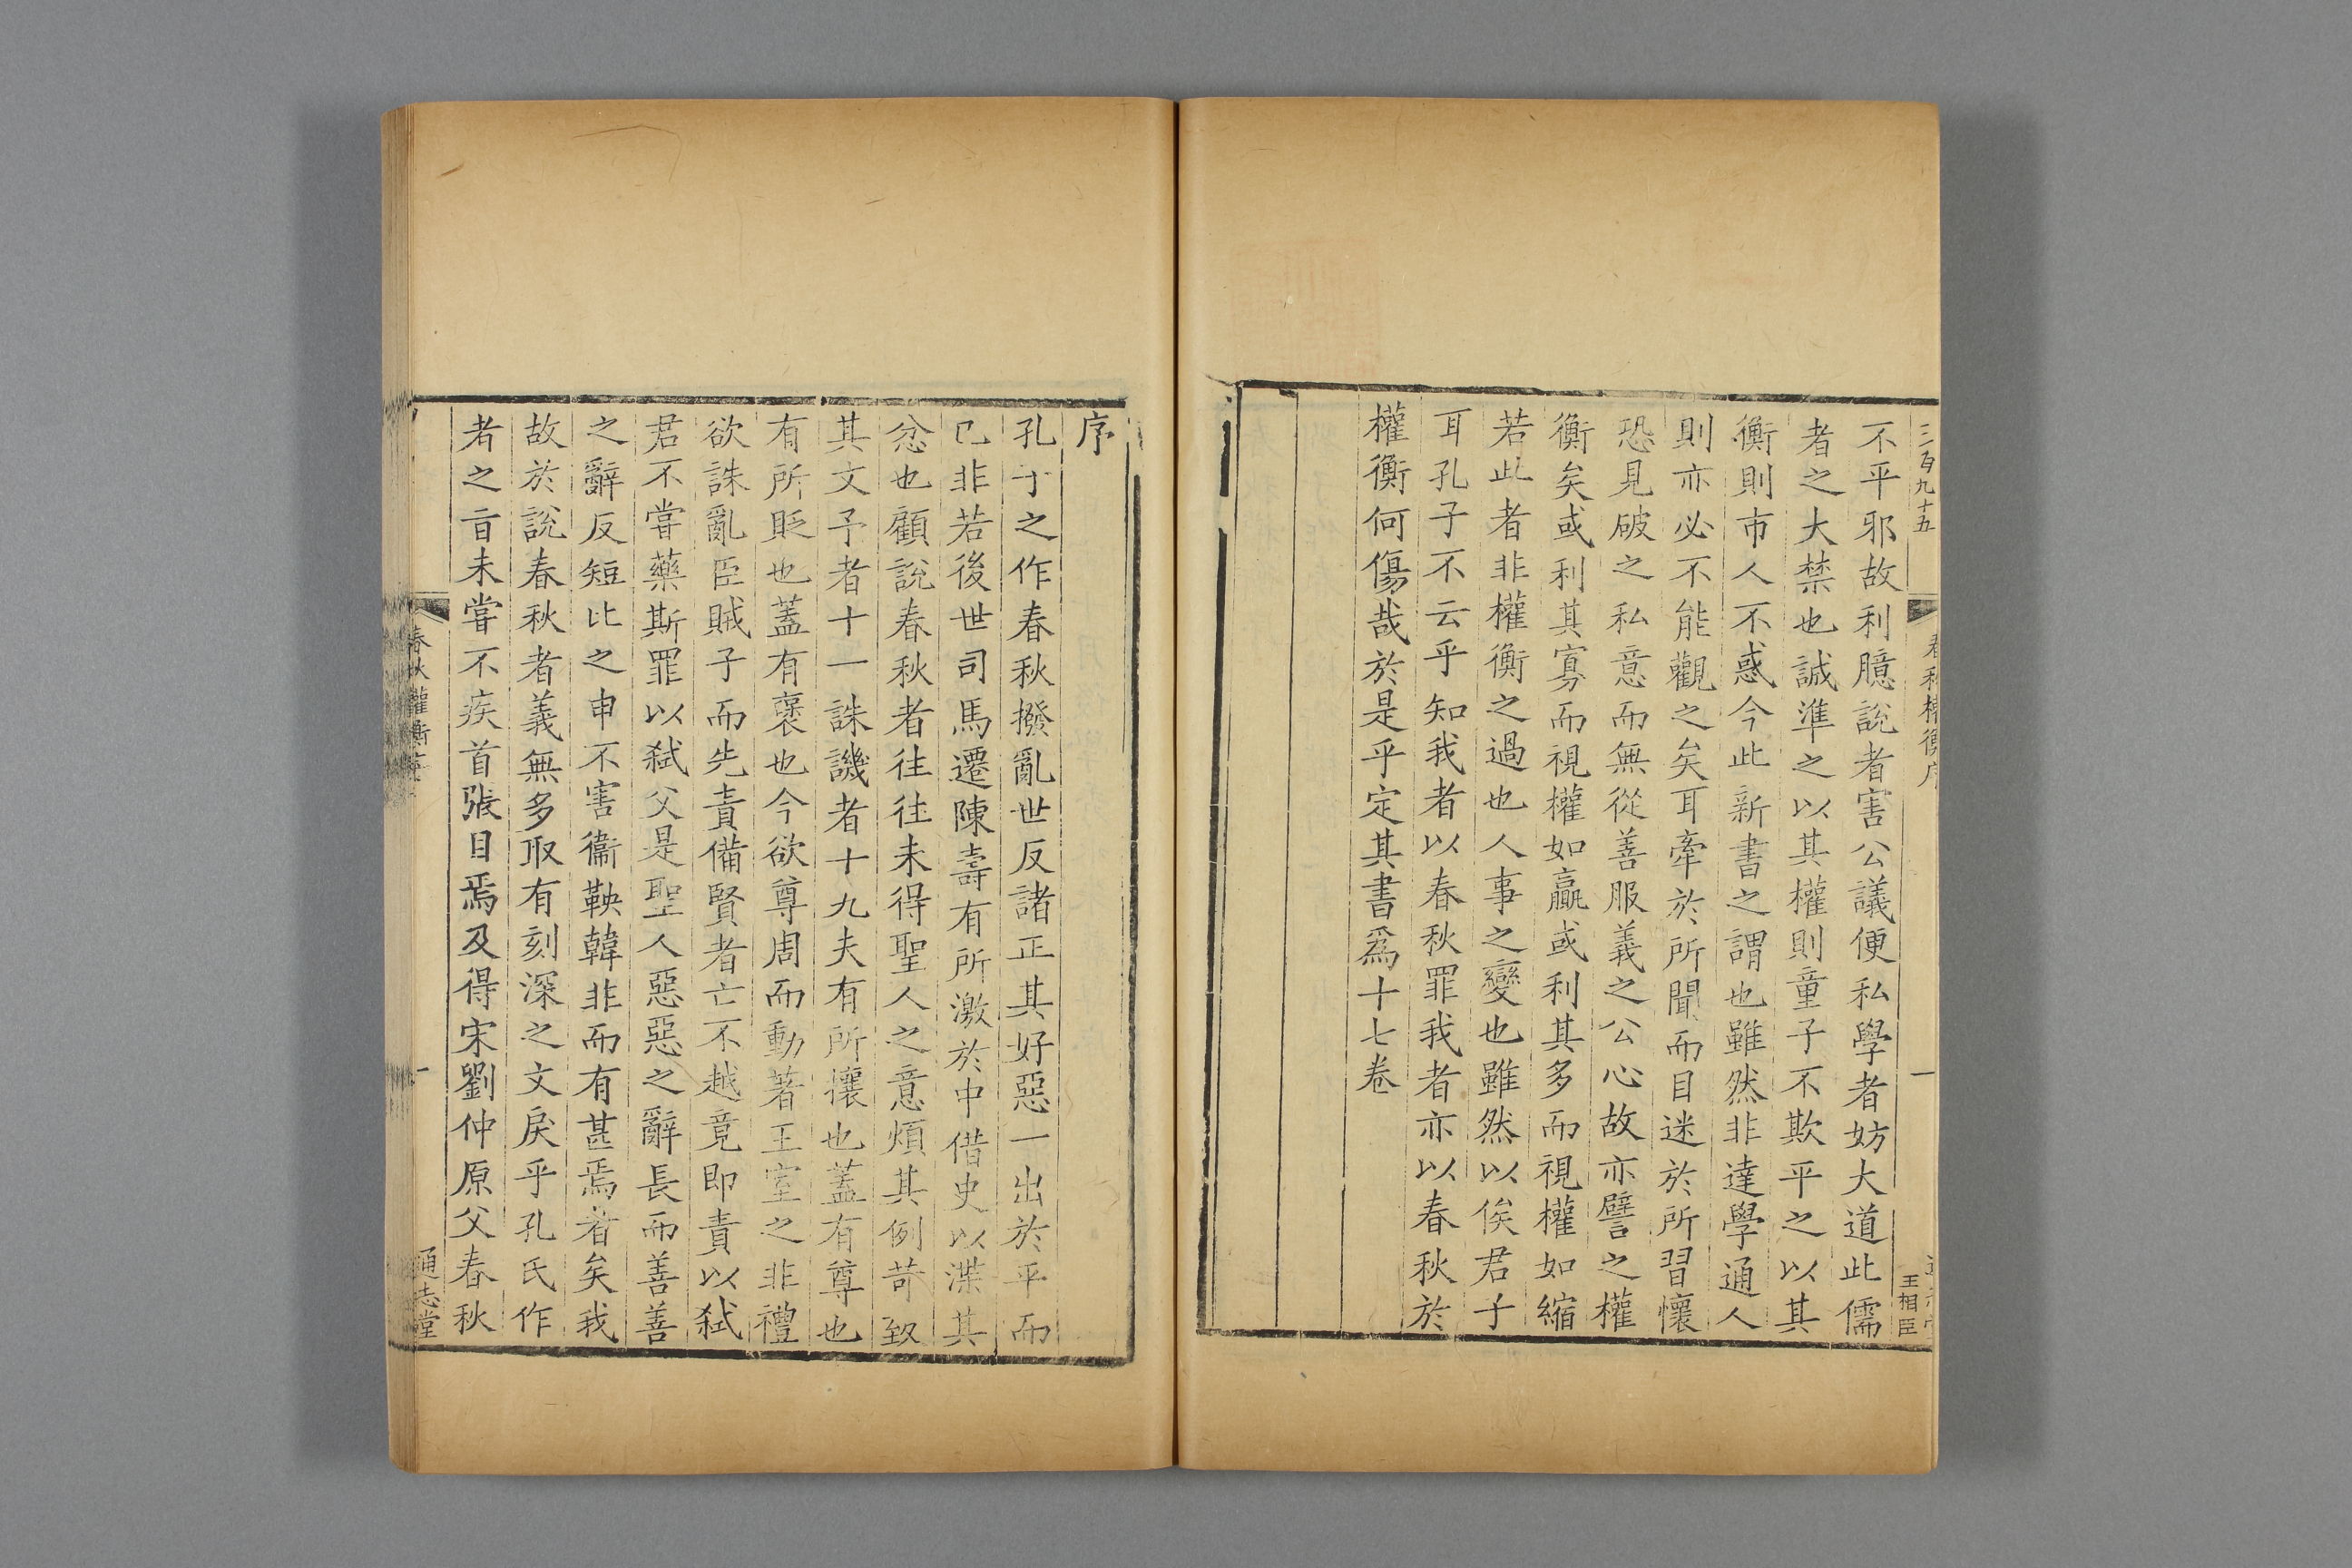 三百九十五
春秋權衡序
一
王相臣
不平邪故利臆說者害公議便私學者妨大道此儒
者之大禁也誠準之以其權則童子不欺平之以其
衡則市人不惑今此新書之謂也雖然非達學通人
則亦必不能觀之矣耳牽於所聞而目迷於所習懷
恐見破之私意而無從善服義之公心故亦譬之權
衡矣或利其寡而視權如贏或利其多而視權如縮
若此者非權衡之過也人事之變也雖然以俟君子
耳孔子不云乎知我者以春秋罪我者亦以春秋於
權衡何傷哉於是乎定其書爲十七卷
序
孔子之作春秋撥亂世反諸正其好惡一出於平而
已非若後世司馬遷陳壽有所激於中借史以渫其
忿也顧說春秋者往往未得聖人之意煩其例苛致
其文予者十一誅譏者十九夫有所攘也蓋有尊也
有所貶也蓋有襃也今欲尊周而動著王室之非禮
欲誅亂臣賊子而先責備賢者亡不越竟即責以弑
君不嘗藥斯罪以弑父是聖人惡惡之辭長而善善
之辭反短比之申不害衞鞅韓非而有甚焉者矣我
故於說春秋者義無多取有刻深之文戾乎孔氏作
者之旨未嘗不疾首張目焉及得宋劉仲原父春秋
春秋權衡序
一
通志堂